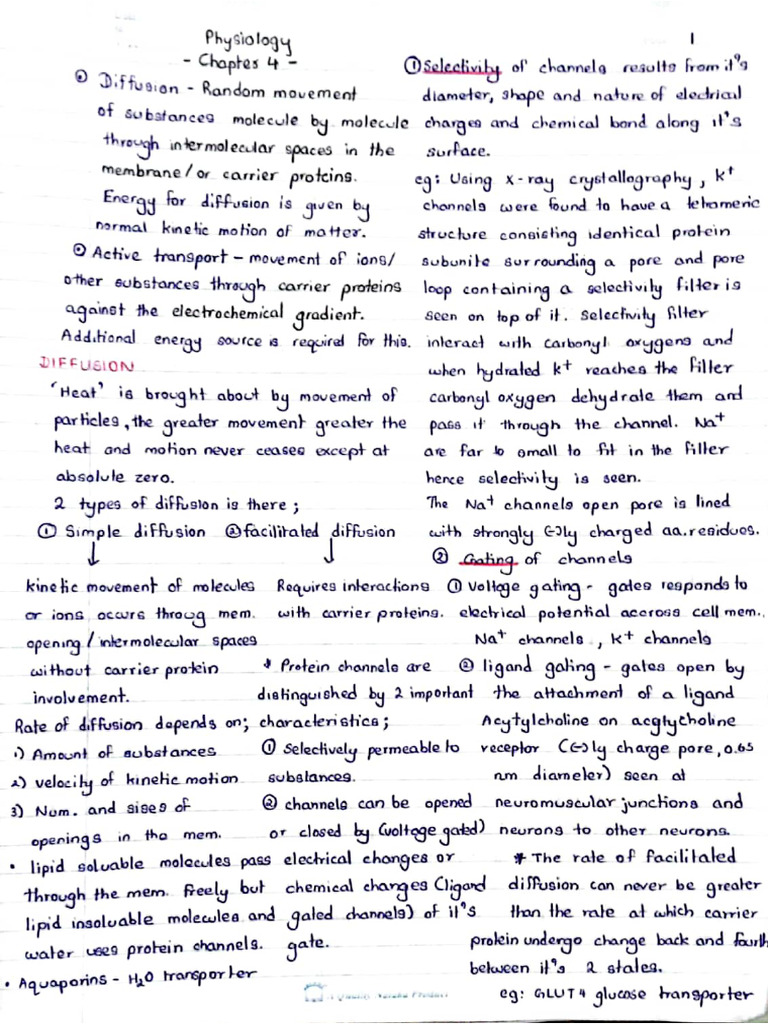 Physiology
- Chapter 4 -
1
Diffusion - Random movement
of substances molecule by molecule
through intermolecular spaces in the
membrane/or carrier proteins.
Energy for diffusion is given by
normal kinetic motion of matter.
Active transport - movement of ions/
other substances through carrier proteins
against the electrochemical gradient.
Additional energy source is required for this.
DIFFUSION
'Heat' is brought about by movement of
particles, the greater movement greater the
heat and motion never ceases except at
absolute zero.
2 types of diffusion is there;
① Simple diffusion ② facilitated diffusion
kinetic movement of molecules
or ions occurs throug mem.
opening/intermolecular spaces
without carrier protein
involvement.
Requires interactions
with carrier proteins.
Rate of diffusion depends on;
1) Amount of substances
2) velocity of kinetic motion
3) Num. and sises of
openings in the mem.
• lipid soluable molecules pass
through the mem. freely but
lipid insoluable molecules and
water uses protein channels.
• Aquaporins - H₂O transporter
* Protein channels are
distinguished by 2 important
characteristics;
① Selectively permeable to
substances.
② channels can be opened
or closed by (voltage gated)
electrical changes or
chemical changes (ligand
gated channels) of it's
gate.
① Selectivity of channels results from it's
diameter, shape and nature of electrical
charges and chemical bond along it's
surface.
eg: Using x-ray crystallography, k⁺
channels were found to have a tetrameric
structure consisting identical protein
subunits surrounding a pore and pore
loop containing a selectivity filter is
seen on top of it. Selectivity filter
interact with carbonyl oxygens and
when hydrated k⁺ reaches the filter
carbonyl oxygen dehydrate them and
pass it through the channel. Na⁺
are far to small to fit in the filter
hence selectivity is seen.
The Na⁺ channels open pore is lined
with strongly (-)ly charged aa.residues.
② Gating of channels
① Voltage gating - gates responds to
electrical potential accross cell mem.
Na⁺ channels, k⁺ channels
② ligand gating - gates open by
the attachment of a ligand
Acytylcholine on acgtycholine
receptor ((-)ly charge pore, 0.65
nm diameter) seen at
neuromuscular junctions and
neurons to other neurons.
* The rate of facilitated
diffusion can never be greater
than the rate at which carrier
protein undergo change back and fourth
between it's 2 states.
eg: GLUT4 glucose transporter